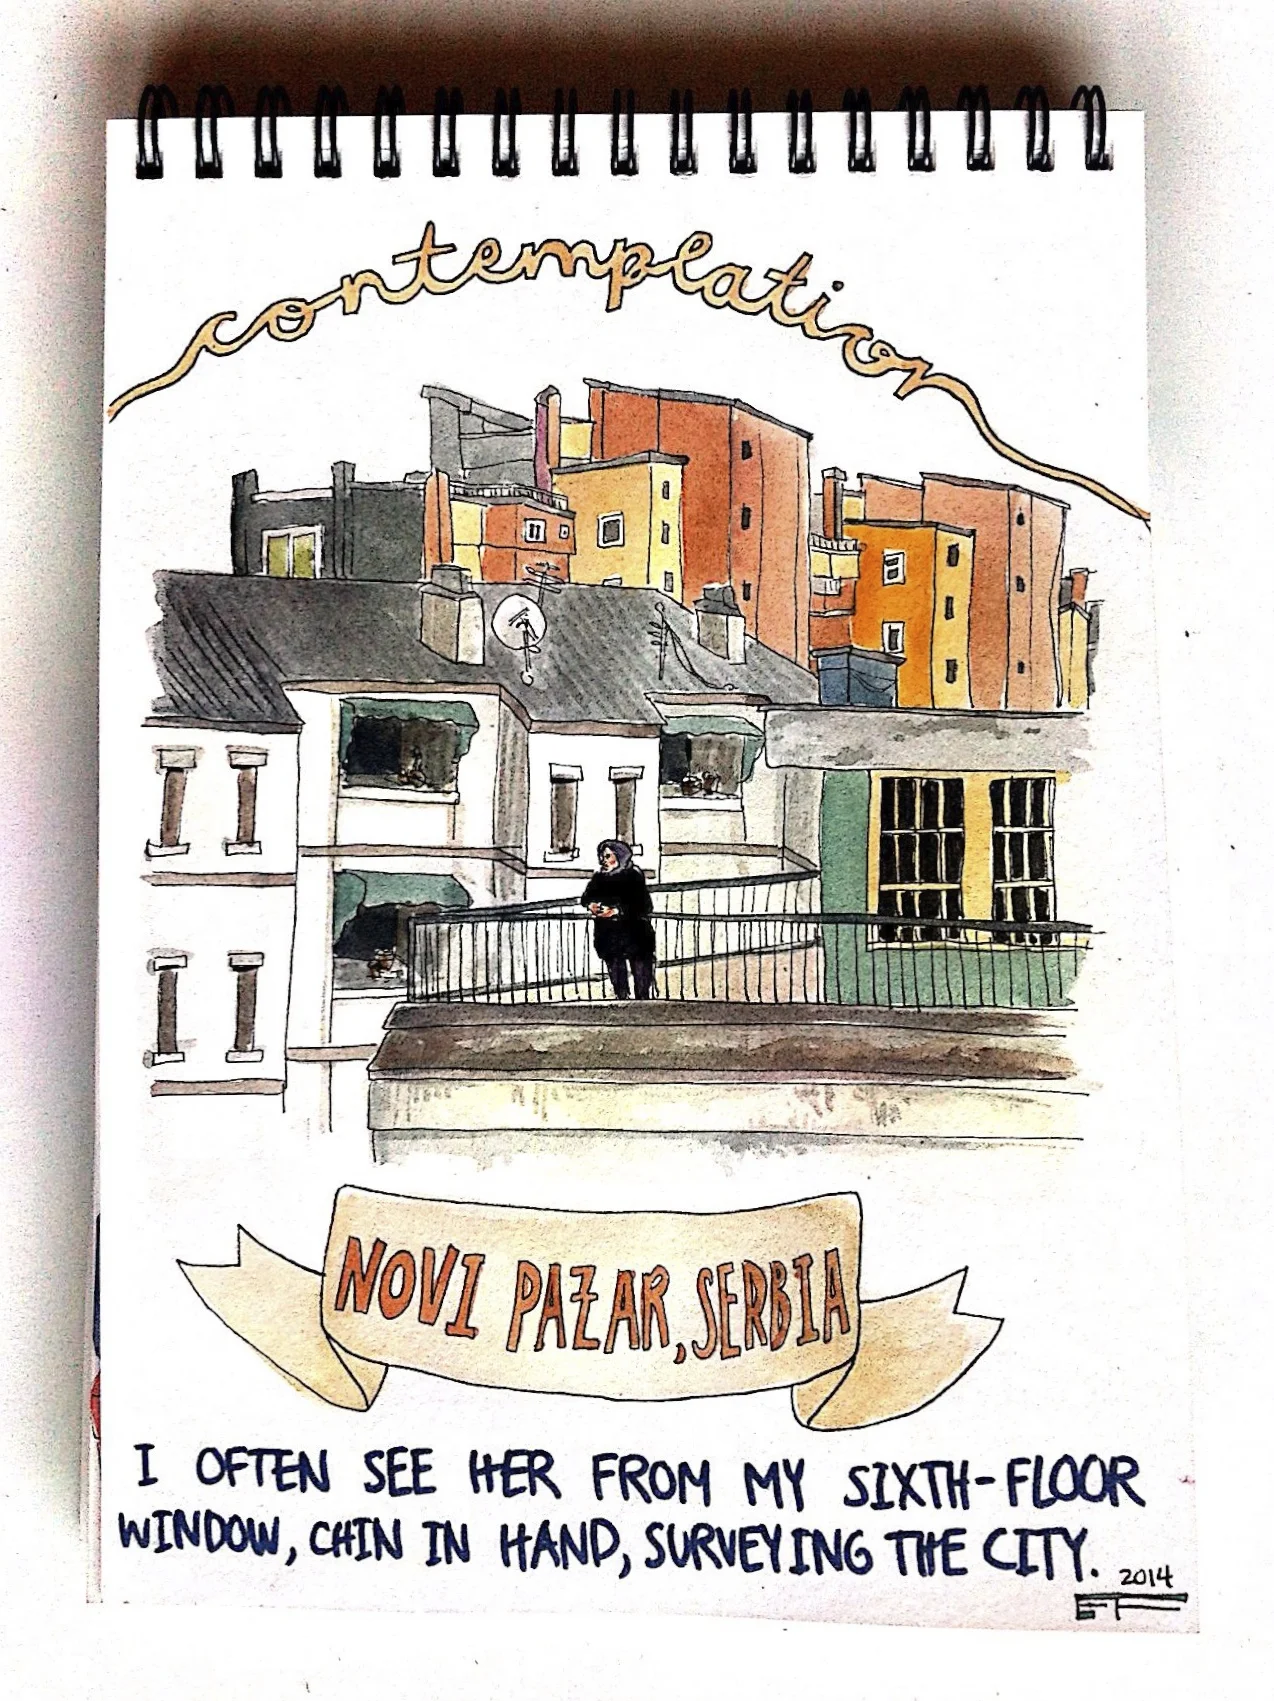 contemplation
NOVI PAZAR, SERBIA
I OFTEN SEE HER FROM MY SIXTH-FLOOR
WINDOW, CHIN IN HAND, SURVEYING THE CITY.
2014